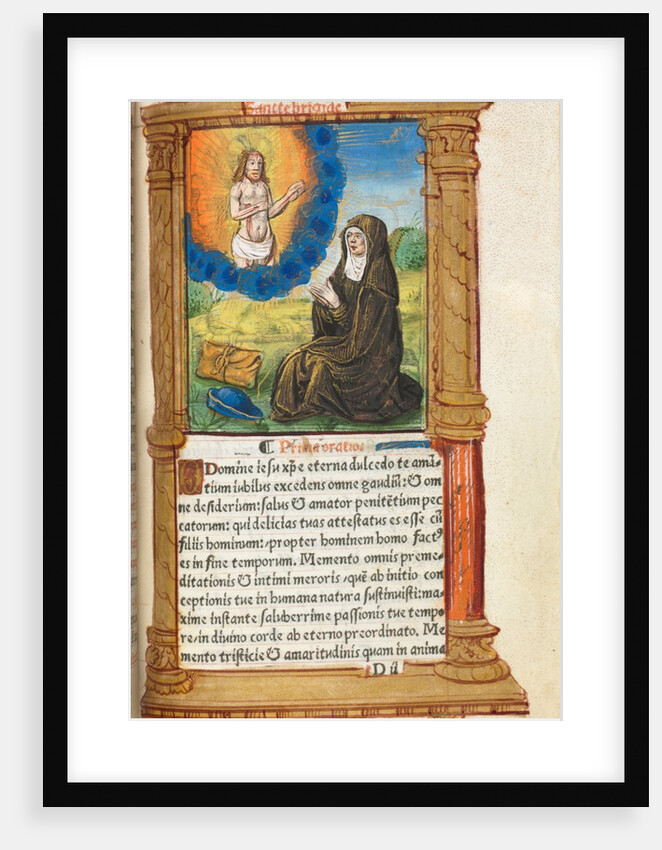 Sancte brigide
¶ Prima oratio
O Domine iesu xp̄e eterna dulcedo te amā-
tium iubilus excedens omne gaudiū: & om
ne desiderium: salus & amator penitētium pec
catorum: qui delicias tuas attestatus es esse cū
filiis hominum: propter hominem homo fact⁹
es in fine temporum. Memento omnis preme-
ditationis & intimi meroris, quē ab initio con
ceptionis tue in humana natura sustinuisti: ma-
xime instante saluberrime passionis tue tempo
re, in diuino corde ab eterno preordinato. Me
mento tristicie & amaritudinis quam in anima
D ii